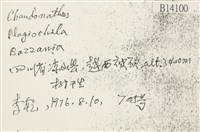 B14100
Chandonanthus
Plagiochila
Bazzania
四川省凉山县, 越西 alt. 3400m
树生
李乾, 1976.8.10,